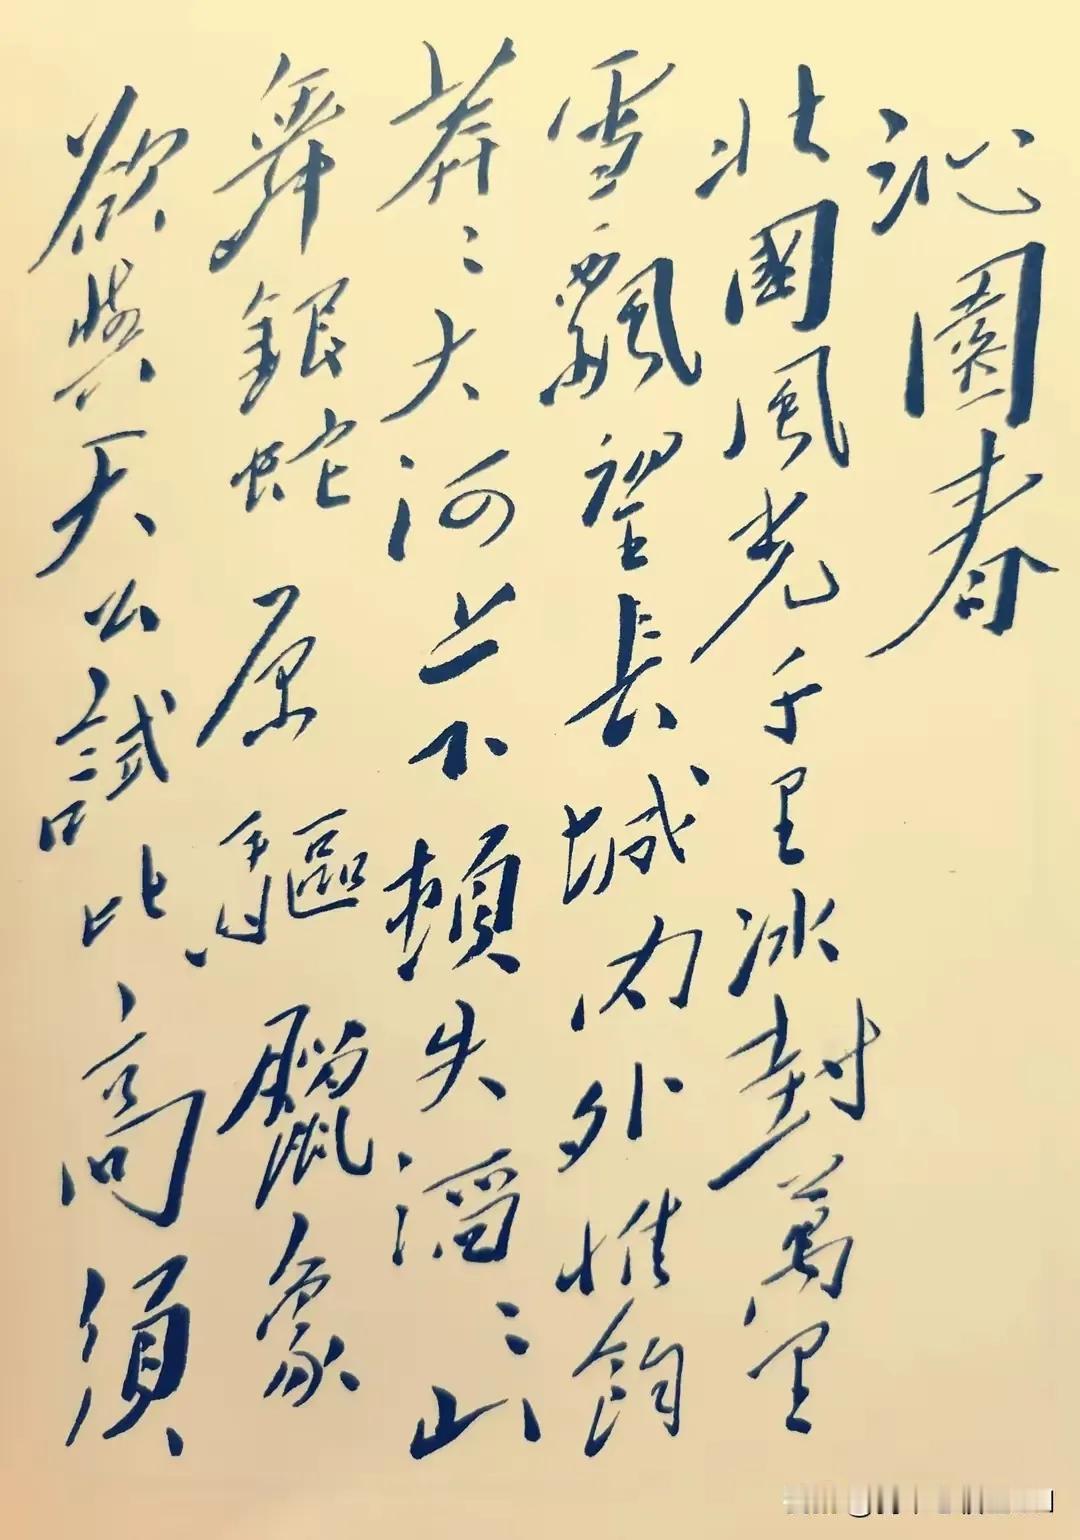 沁園春
北國風光千里冰封萬里
雪飄望長城内外惟餘
莽〻大河上下頓失滔〻山
舞銀蛇原驅臘象
欲與天公試比高須